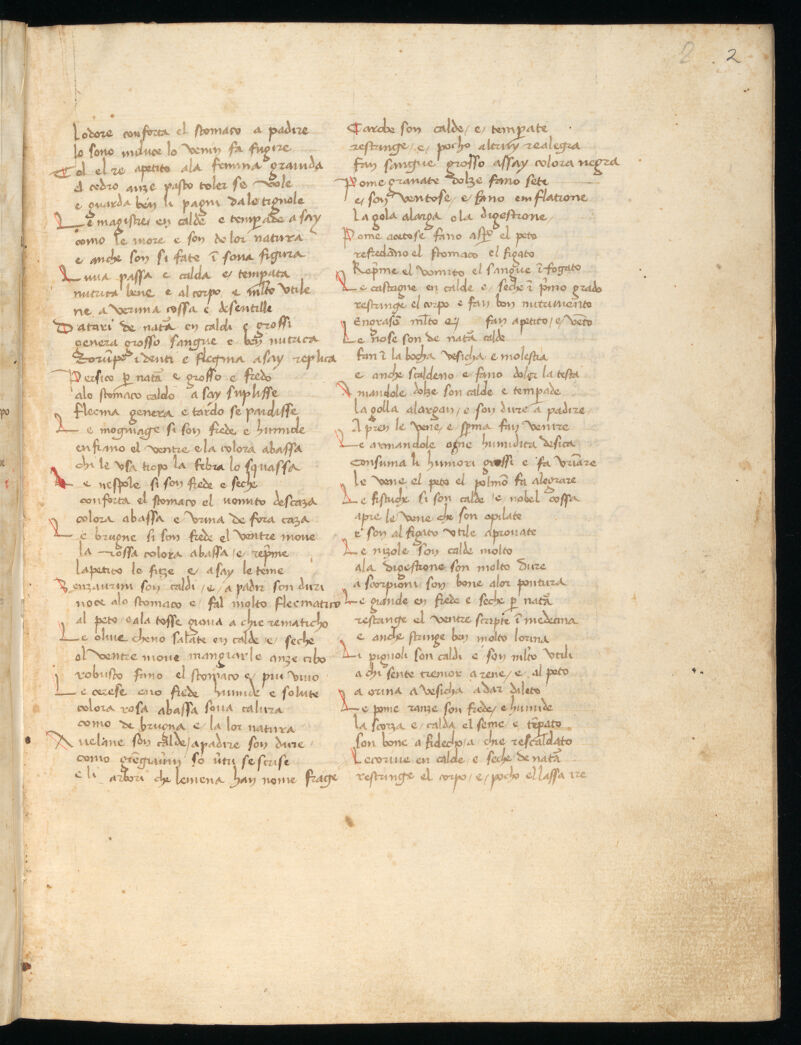 2 . 2
Lodore conforta el stomaco a padire
lo sono induce lo venin fa fugire
Tol el re apetito ala femina gravida
el cedro anze pasto toler se vole
e guarda ben li pagni dale tignole
Le magistre en calde e temperade asay
como le more e son de lor natura
e anche son si fate i sova figura
Luva passa e calda e temperata
nutrica bene e al corpo e mlto utile
ne a veruna cossa e desentille
Datari de nata en caldi e grossi
genera grosso sangue e ben nutrica
Corumpe i denti e flegma asay replica
Persico p nata e grosso e fredo
alo stomaco caldo asay suplisse
flecma genera e tardo se paidisse
Le mognage si son frede e humide
enfiano el ventre e la colora abassa
chi le usa tropo la febra lo squassa
Le nespole si son frede e seche
conforta el stomaco el vomito descaza
colora abassa e urina de fora caza
Le brugne si son frede el ventre move
la rossa colora abassa e repme
lapetito lo fize e asay le teme
Benzavruni son caldi e a padir son duri
noce alo stomaco e fal molto flecmatico
al peto e ala tosse giova a chi e rematicho
Le olive cheno salate en calde e seche
ol ventre move mangiarle anze cibo
robusto fano el stomaco e piu vivo
Le cerese eno frede humide e solute
colora rosa abassa sova calura
como de brugna e la lor natura
Avelane son calde apadire son dure
como
e li arbori che lemena han nome frage
Carobe son calde e temperate
restringe e pocho altruy realegra
fan sangue grosso assay colora negra
Pome granate dolze fano sete
e son ventose e fano emflatione
la gola alarga ola digestione
Pome acetose fano aspo el peto
refredano el stomaco el figato
Repme el vomito el sangue i fogato
Le castagne en calde e seche i pmo grado
restringe el corpo e fan bon nutrimento
Engrasa mlto e fan apetito e veto
Le nose son de nata calde
fan i la bocha vesicha e molestia
e anche scaldeno e fano doler la testa
Amandole dolze son calde e tempade
la golla alargan e son dure a padire
Apren le vene e sperma fan venire
Le armandole ogne humidita desica
Consuma li humori grossi e fa urinare
le vene el peto el polmo fa alegrare
Le fistuche si son calde e nobel cossa
apre le vene che son opilate
e son al figato utile aprovate
Le nizole son calde molto
ala digestione son molto dure
a scorpioni son bone alor pontura
Le giande en frede e seche p nata
restringe el ventre scripte i medecina
e anche stringe ben molto lorina
Li pignoli son caldi e son mlto utili
a chi sente tremor a rene e al peto
a orina a vesicha a dar dileto
Le pome ranze son frede e humide
la scorza e calda el seme e tepato
son bone a fidecho a che rescaldato
Le corme en calde e seche de nata
restringe el corpo e pocho el lassa ire